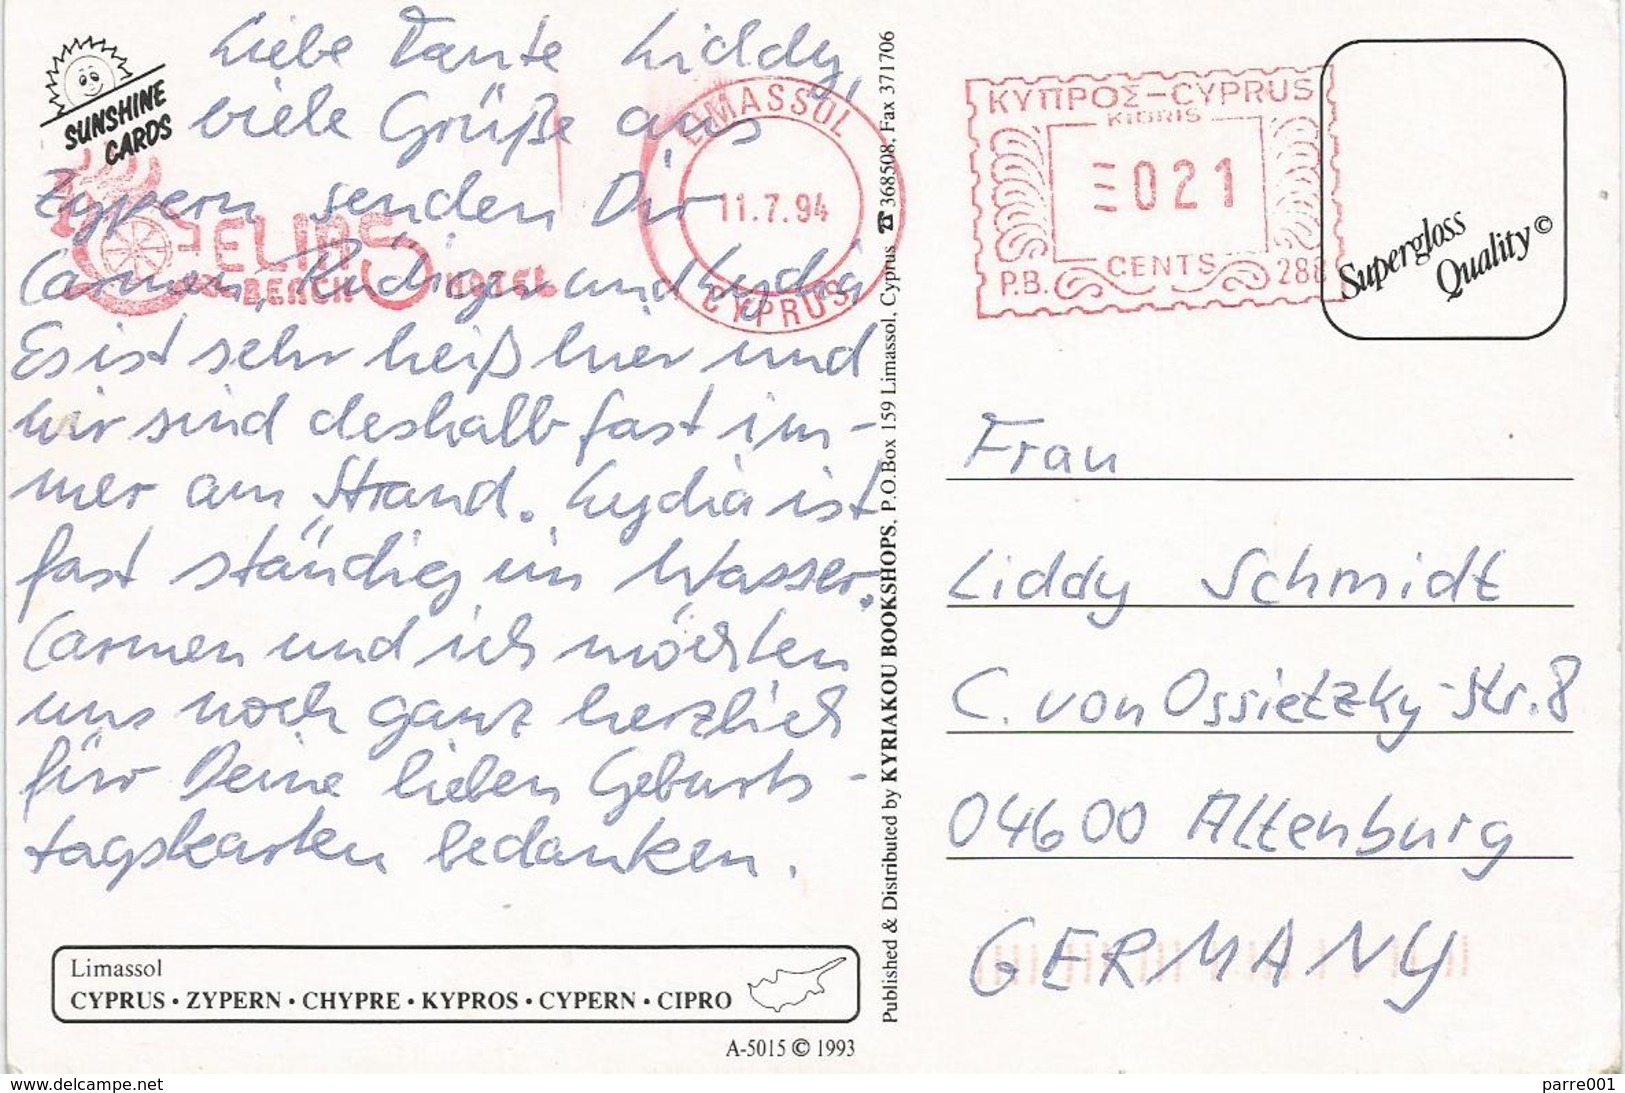 SUNSHINE
CARDS
Liebe Tante Liddy,
viele Grüße aus
Zypern senden Dir
Carmen, Rüdiger und Lydia
Es ist sehr heiß hier und
wir sind deshalb fast im-
mer am Strand. Lydia ist
fast ständig im Wasser.
Carmen und ich möchten
uns noch ganz herzlich
für Deine lieben Geburts-
tagskarten bedanken.
ELIAS
BEACH HOTEL
LIMASSOL
11.7.94
CYPRUS
Limassol
CYPRUS • ZYPERN • CHYPRE • KYPROS • CYPERN • CIPRO
A-5015 © 1993
Published & Distributed by KYRIAKOU BOOKSHOPS, P.O.Box 159 Limassol, Cyprus ☎ 368508, Fax 371706
ΚΥΠΡΟΣ-CYPRUS
KIBRIS
021
CENTS
P.B. 288
Supergloss
Quality ©
Frau
Liddy Schmidt
C. von Ossietzky-Str. 8
04600 Altenburg
GERMANY
www.delcampe.net
parre001